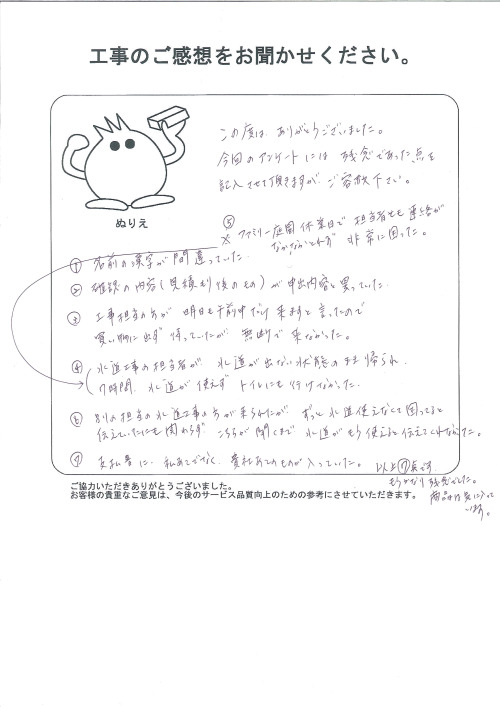 工事のご感想をお聞かせください。
この度は、ありがとうございました。
今回のアンケートには 残念であった点を
記入させて頂きますが ご容赦下さい。
ぬりえ
⑤
※ ファミリー庭園 休業日で 担当者とも 連絡が
なかなかとれず 非常に困った。
① 名前の漢字が間違っていた。
② 確認の内容(見積もり後のもの)が 申出内容と異っていた。
③ 工事担当の方が 明日も午前中だけ来ますと言ったので
買い物に出ず 待っていたが 無断で 来なかった。
④ 水道工事の担当者が、水道が出ない状態のまま 帰られ、
7時間、水道が 使えず トイレにも行けなかった。
⑥ 別の担当の水道工事の方が来られたが ずっと水道使えなくて困ってると
伝えていたにも関わらず こちらが聞くまで 水道がもう使えると伝えてくれなかった。
⑦ 支払書に、私あてでなく、貴社あてのものが入っていた。
以上⑦点です
もうかなり残念でした。
商品は気に入って
います。
ご協力いただきありがとうございました。
お客様の貴重なご意見は、今後のサービス品質向上のための参考にさせていただきます。